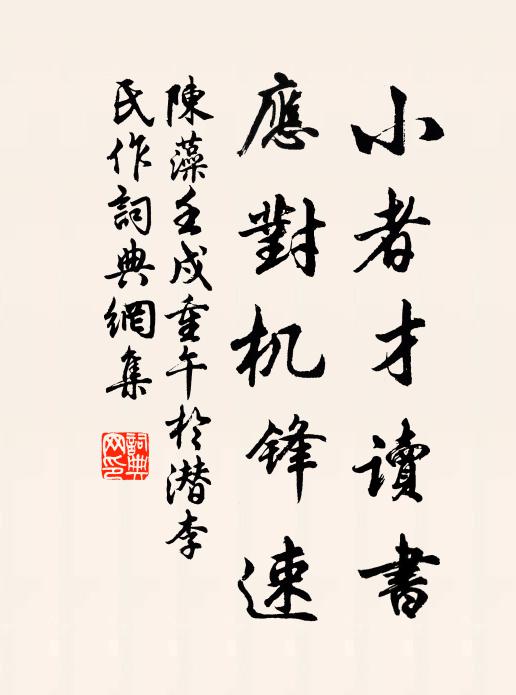 小者才讀書
應對机锋速
陳藻壬戌重午於潜李
氏作詞典網集
詞典网印